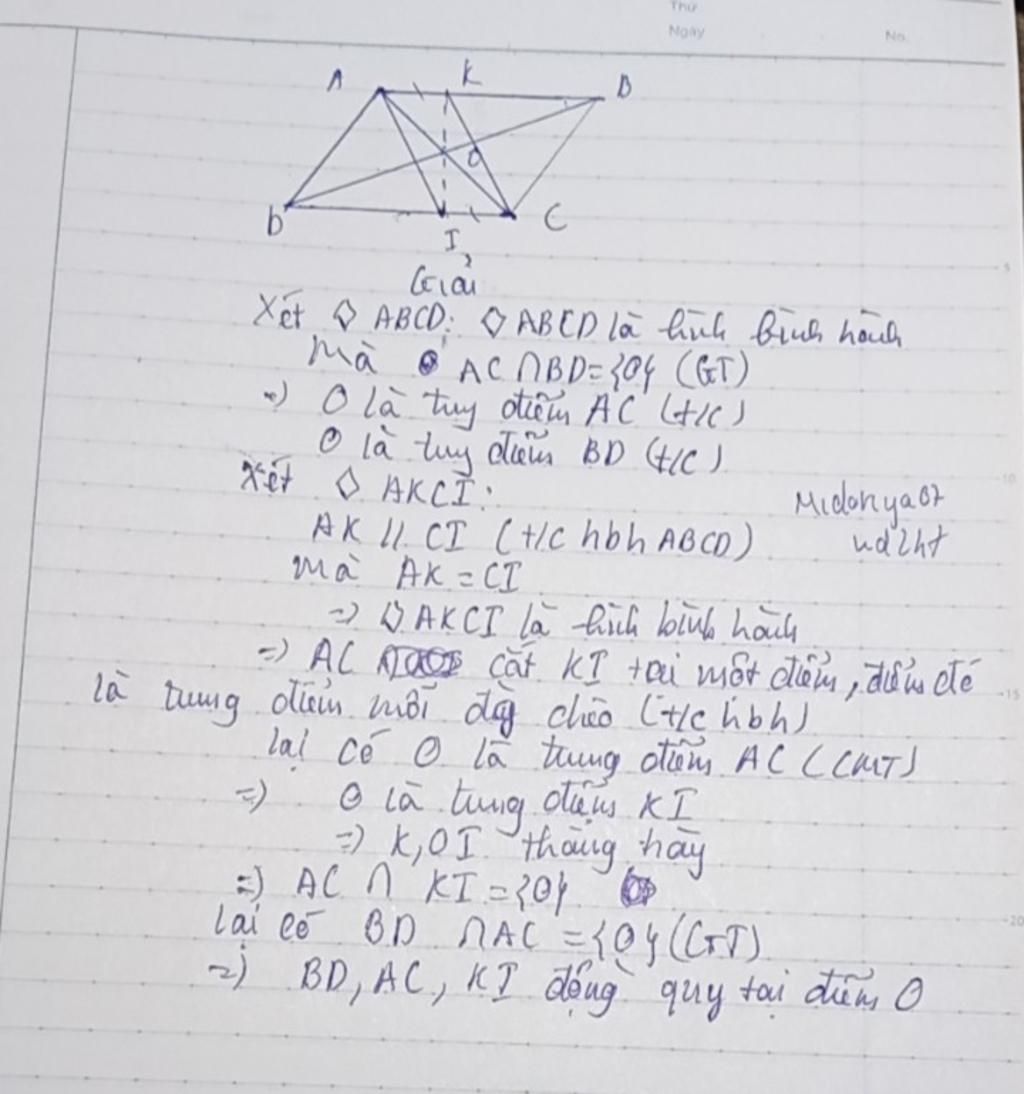 Thứ
Ngày No.
A K B
O
D I C
Giải
Xét ◇ ABCD: ◇ ABCD là hình bình hành
mà AC ∩ BD = {O} (GT)
=> O là tuy điểm AC (t/c)
O là tuy điểm BD (t/c)
Xét ◇ AKCI:
AK // CI (t/c hbh ABCD)
mà AK = CI
=> ◇ AKCI là hình bình hành
=> AC cắt KI tại một điểm, điểm đó
là trung điểm mỗi đg chéo (t/c hbh)
lại có O là trung điểm AC (CMT)
=> O là trung điểm KI
=> K, O I thẳng hàg
=> AC ∩ KI = {O}
Lại có BD ∩ AC = {O} (GT)
=> BD, AC, KI đồng quy tại điểm O
5
10
15
20